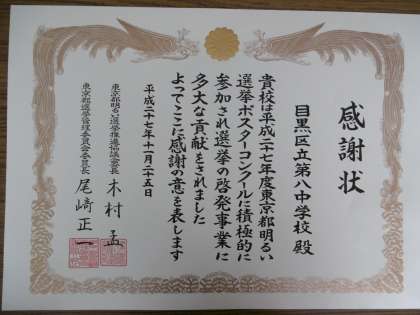 感謝状
目黒区立第八中学校 殿
貴校は平成二十七年度東京都明るい
選挙ポスターコンクールに積極的に
参加され選挙の啓発事業に
多大な貢献をされました
よってここに感謝の意を表します
平成二十七年十一月二十五日
東京都明るい選挙推進協議会長 木村孟
東京都選挙管理委員会委員長 尾崎正一